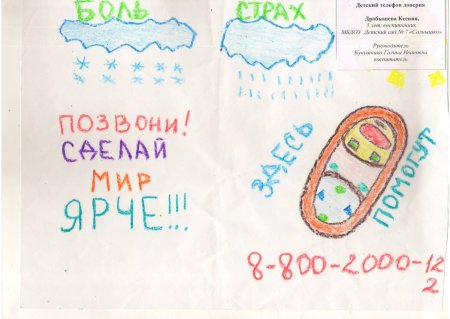 БОЛЬ
СТРАХ
Детский телефон доверия
Драбышева Ксения,
5 лет, воспитанник
МКДОУ Детский сад № 7 «Солнышко»
Руководитель
Кукушкина Галина Ивановна
воспитатель
ПОЗВОНИ!
СДЕЛАЙ
МИР
ЯРЧЕ!!!
ЗДЕСЬ
ПОМОГУТ
8-800-2000-12
2